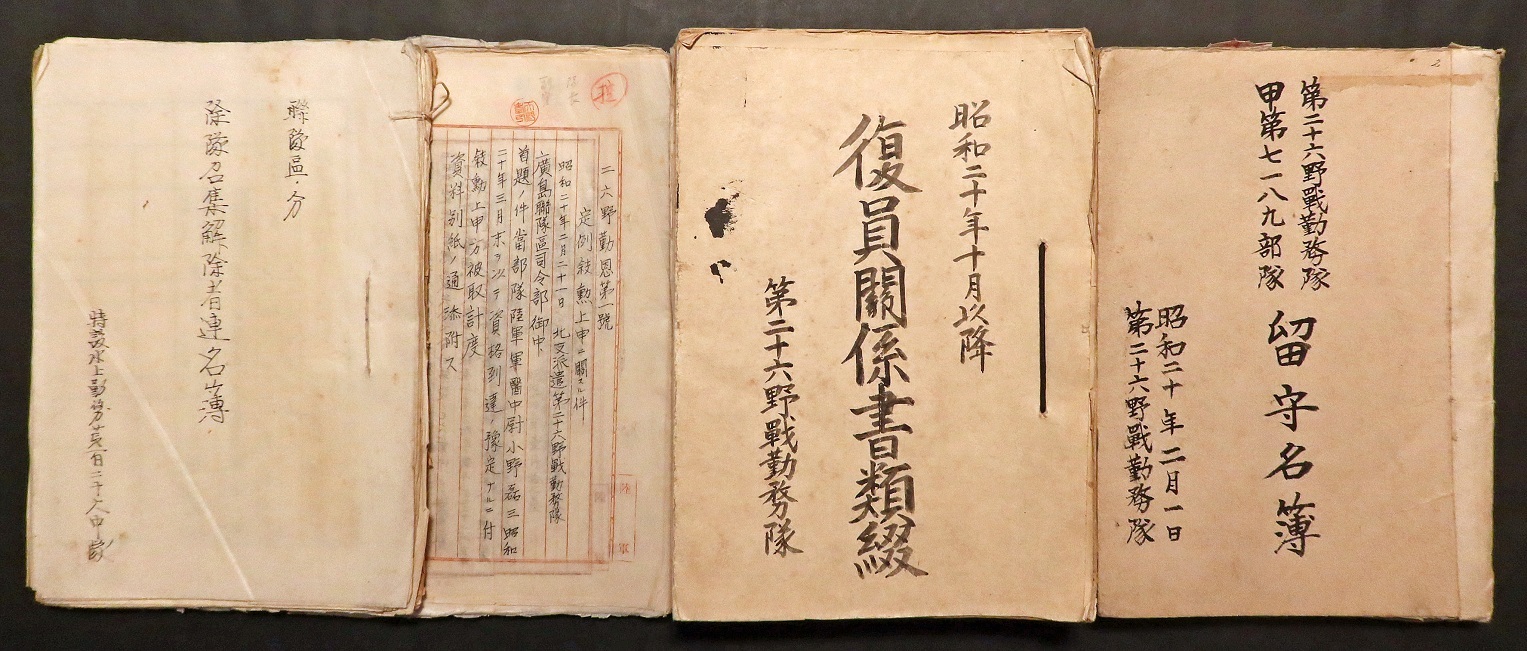 第二十六野戰勤務隊
甲第七一八九部隊
留守名簿
昭和二十年二月一日
第二十六野戰勤務隊
昭和二十年十月以降
復員關係書類綴
第二十六野戰勤務隊
二六野勤恩第一號
定例敍勳上申ニ關スル件
昭和二十年二月二十一日 北支派遣第二十六野戰勤務隊
廣島聯隊區司令部御中
首題ノ件當部隊陸軍軍醫中尉小野磊三昭和
二十年三月末ヲ以テ資格到達ノ豫定ナルニ付
敍勳上申方被取計度
資料別紙ノ通添附ス
陸軍
聯隊區ノ分
除隊召集解除者連名簿
特設水上勤務第百二十八中隊